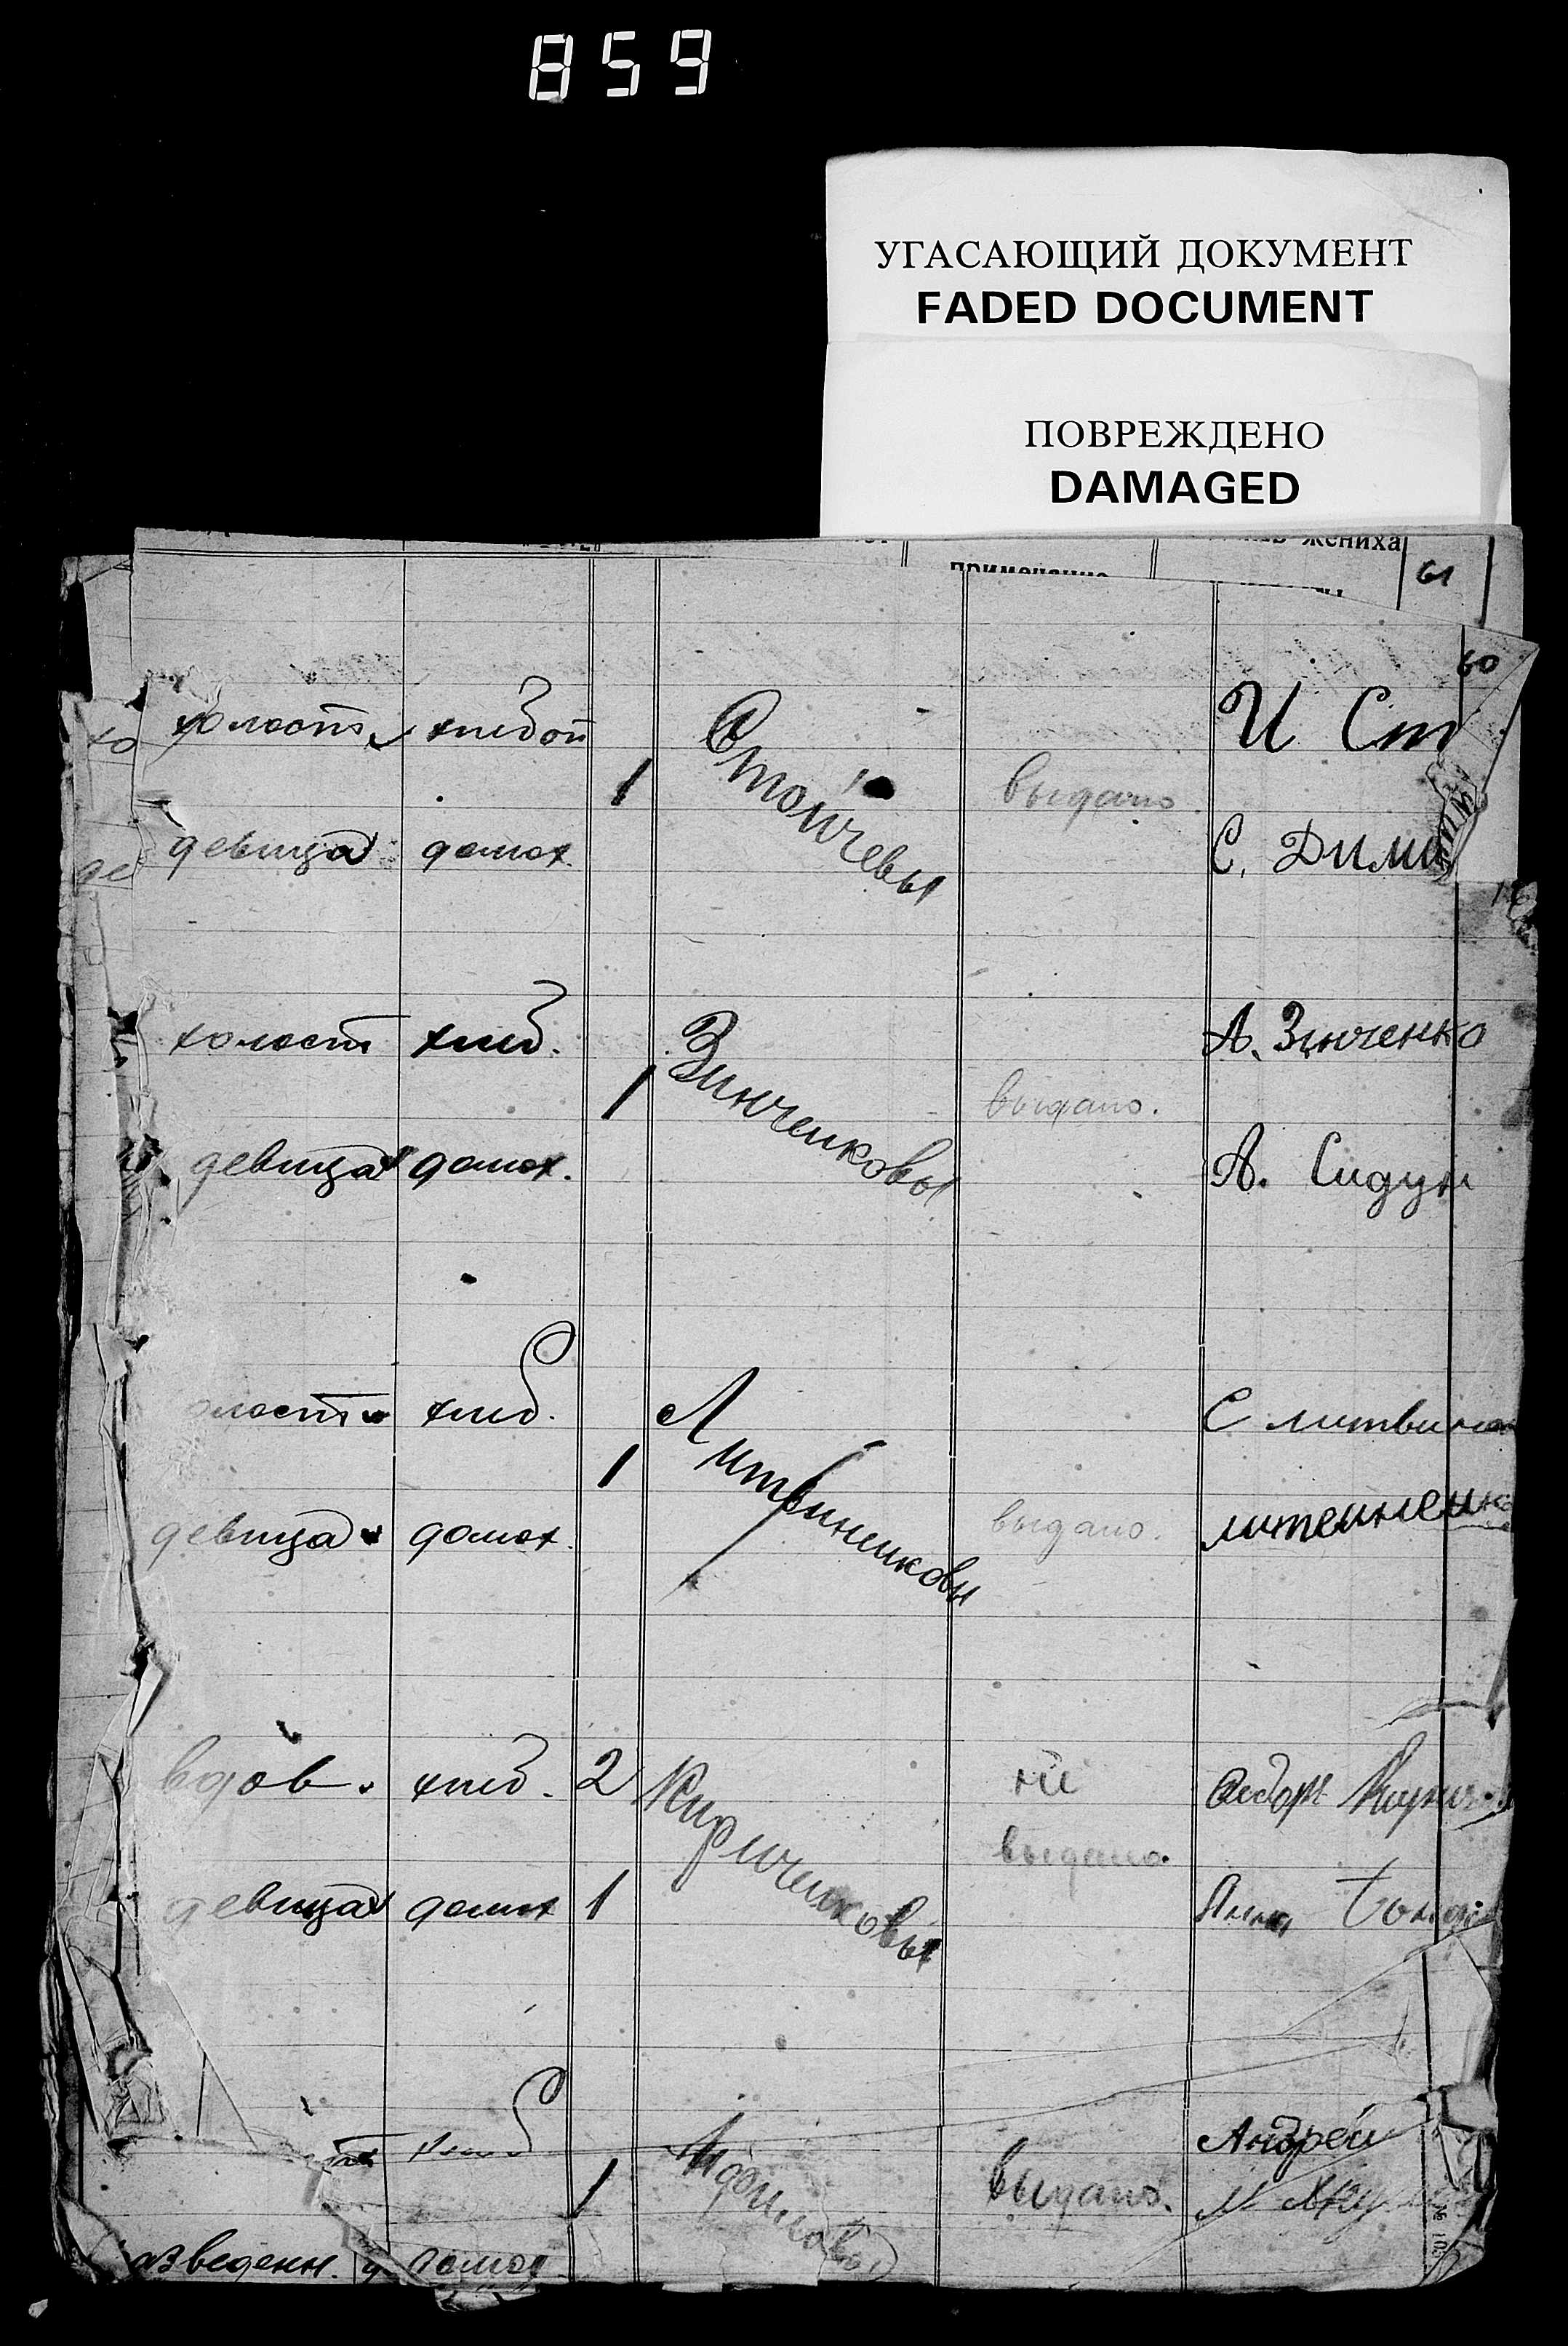 859
УГАСАЮЩИЙ ДОКУМЕНТ
FADED DOCUMENT
ПОВРЕЖДЕНО
DAMAGED
жениха
примечание
61
60
холост хлебоп
1
Стойчевы
выдано
И Ст
девица домох.
С. Дими
холост хлеб.
1
Зинченковы
выдано.
А. Зинченко
девица домох.
А. Сидун
олост хлеб.
1
Литвиненковы
выдано.
С литвинен
девица домох.
вдов. хлеб. 2
Кириченковы
не
выдано.
Федорь Кирич
девица домох 1
Анна Бонда
хлеб
1
выдано.
Андрей
азведенн. домох